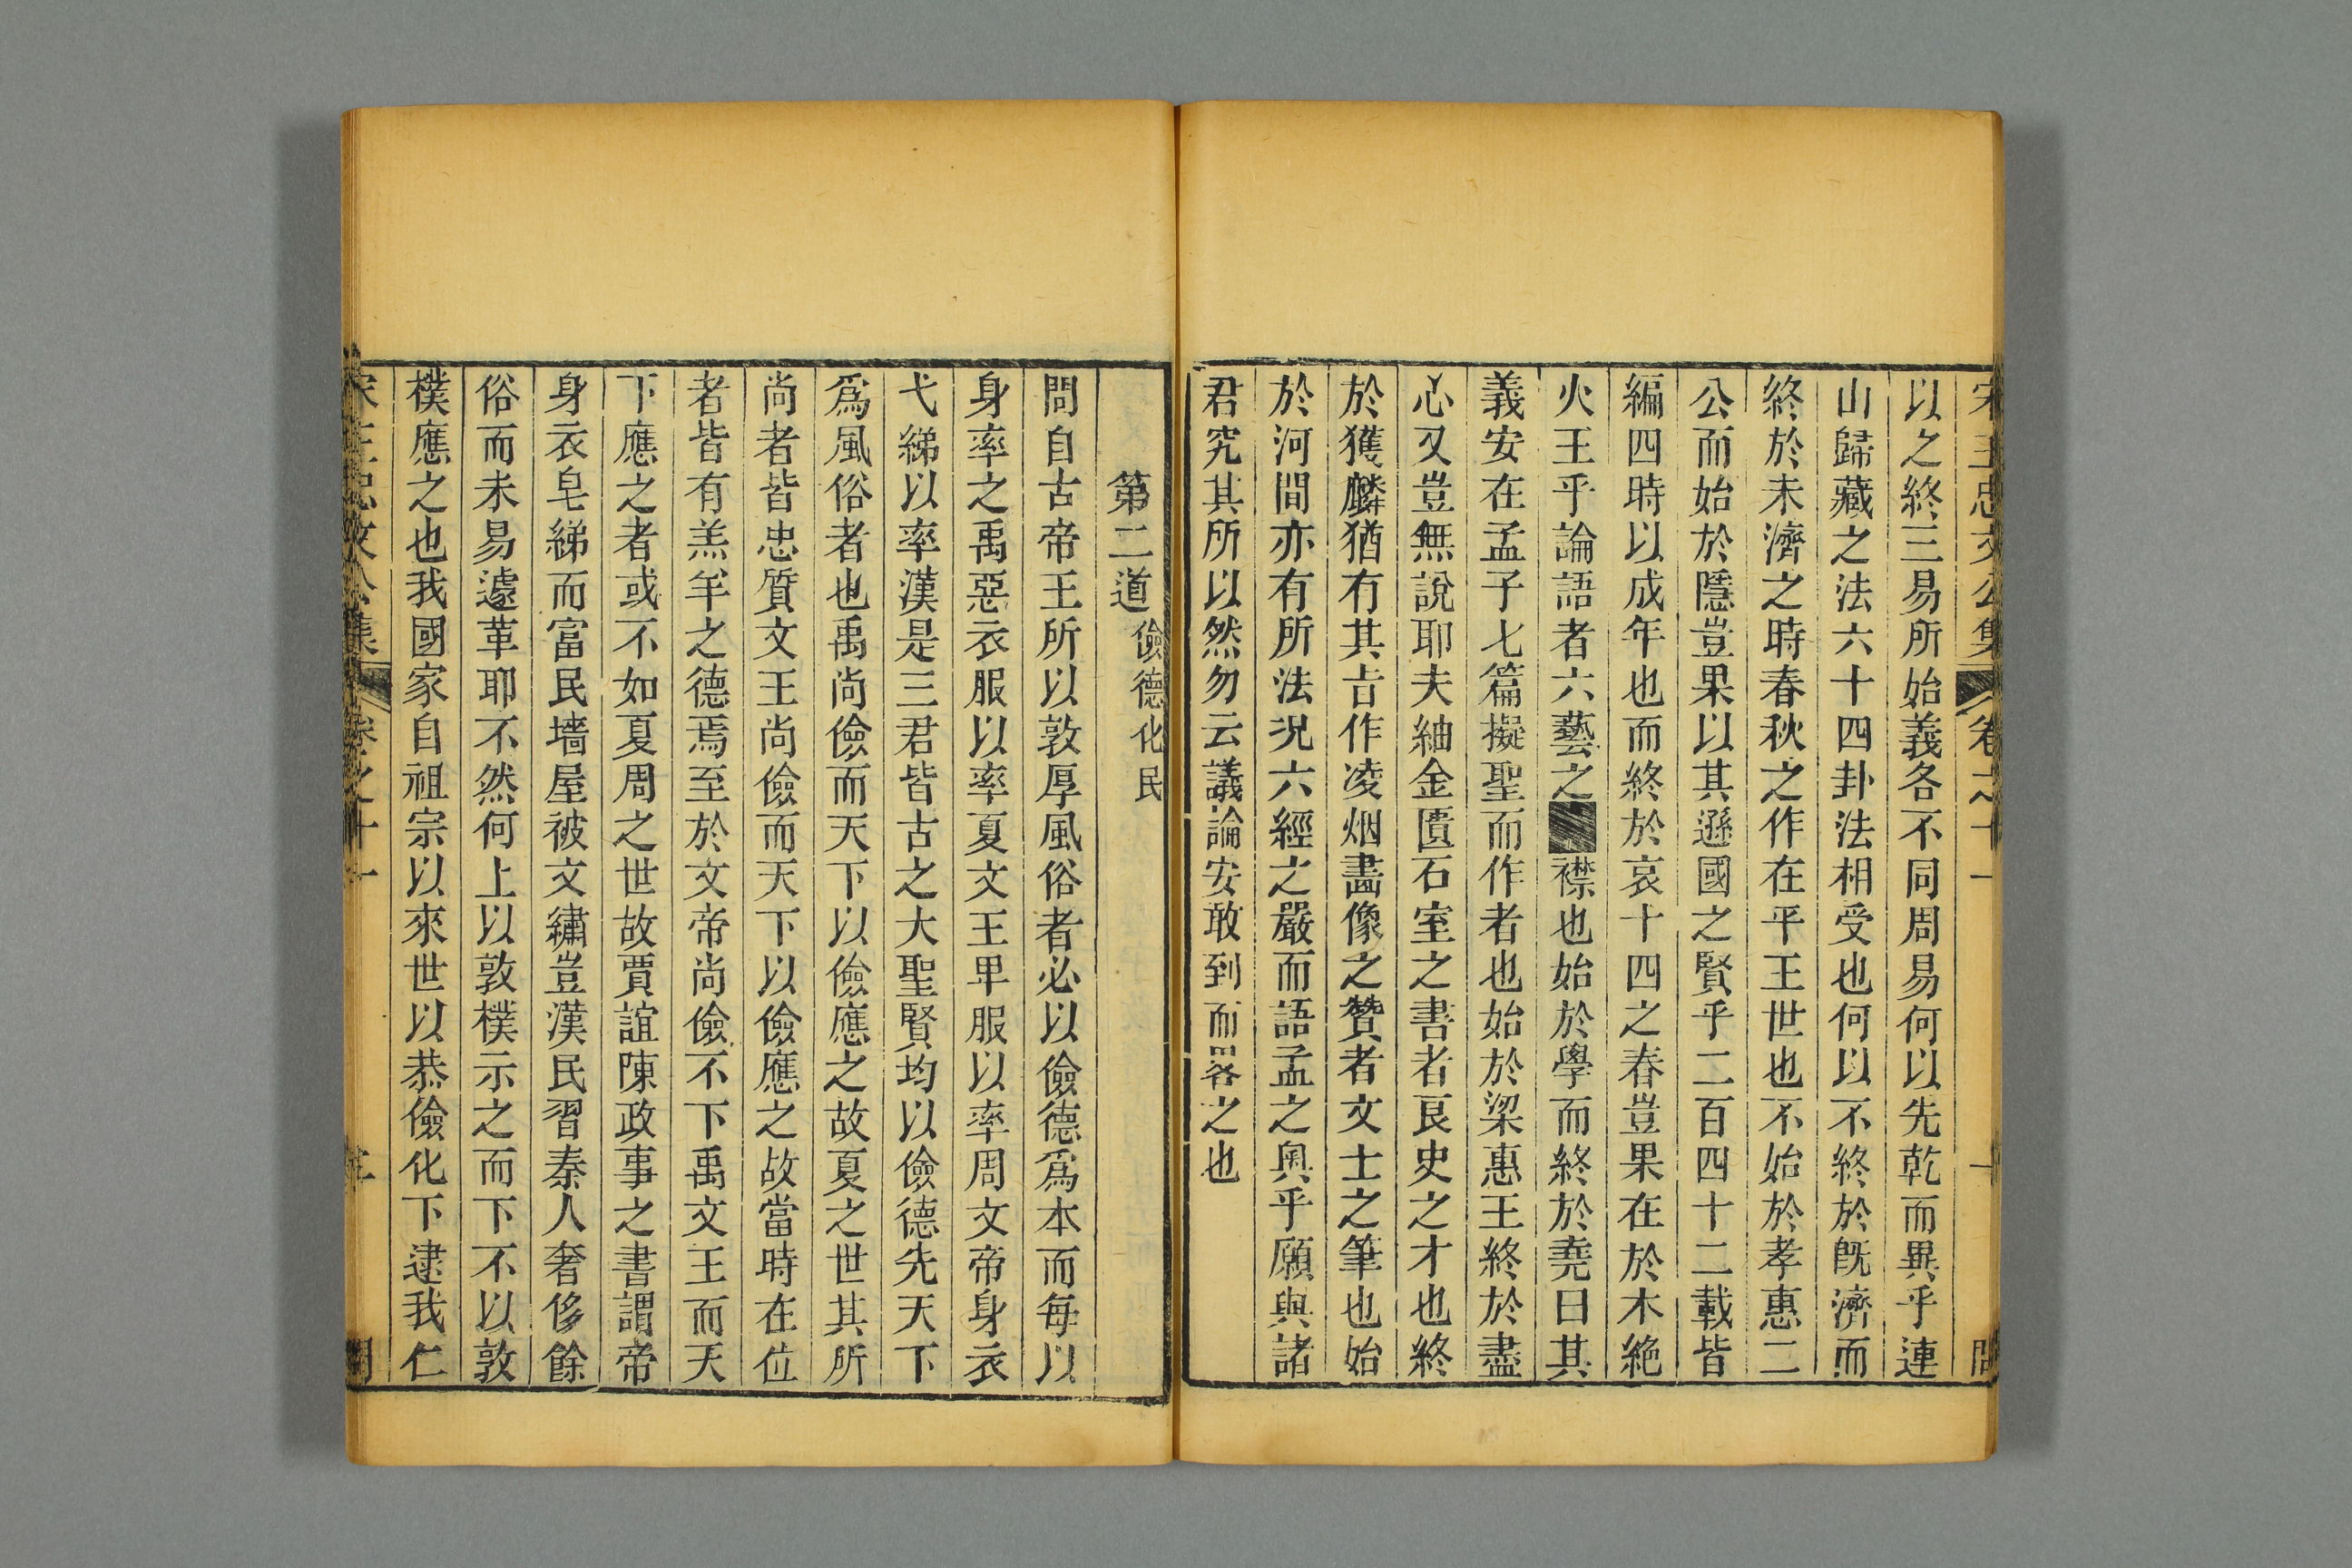 宋王忠文公集 卷之十一
以之終三易所始義各不同周易何以先乾而異乎連
山歸藏之法六十四卦法相受也何以不終於旣濟而
終於未濟之時春秋之作在平王世也不始於孝惠二
公而始於隱豈果以其遜國之賢乎二百四十二載皆
編四時以成年也而終於哀十四之春豈果在於木絶
火王乎論語者六藝之襟也始於學而終於堯曰其
義安在孟子七篇擬聖而作者也始於梁惠王終於盡
心又豈無說耶夫紬金匱石室之書者良史之才也終
於獲麟猶有其旨作凌烟畵像之贊者文士之筆也始
於河間亦有所法况六經之嚴而語孟之奧乎願與諸
君究其所以然勿云議論安敢到而畧之也
第二道 儉德化民
問自古帝王所以敦厚風俗者必以儉德爲本而每以
身率之禹惡衣服以率夏文王卑服以率周文帝身衣
弋綈以率漢是三君皆古之大聖賢均以儉德先天下
爲風俗者也禹尚儉而天下以儉應之故夏之世其所
尚者皆忠質文王尚儉而天下以儉應之故當時在位
者皆有羔羊之德焉至於文帝尚儉不下禹文王而天
下應之者或不如夏周之世故賈誼陳政事之書謂帝
身衣皂綈而富民墻屋被文繡豈漢民習秦人奢侈餘
俗而未易遽革耶不然何上以敦樸示之而下不以敦
樸應之也我國家自祖宗以來世以恭儉化下逮我仁
宋王忠文公集 卷之十一